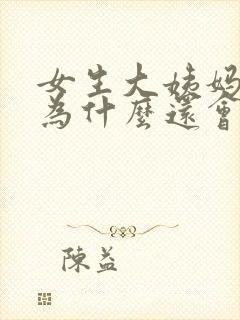 女生大姨妈
為什麼還會
陳益